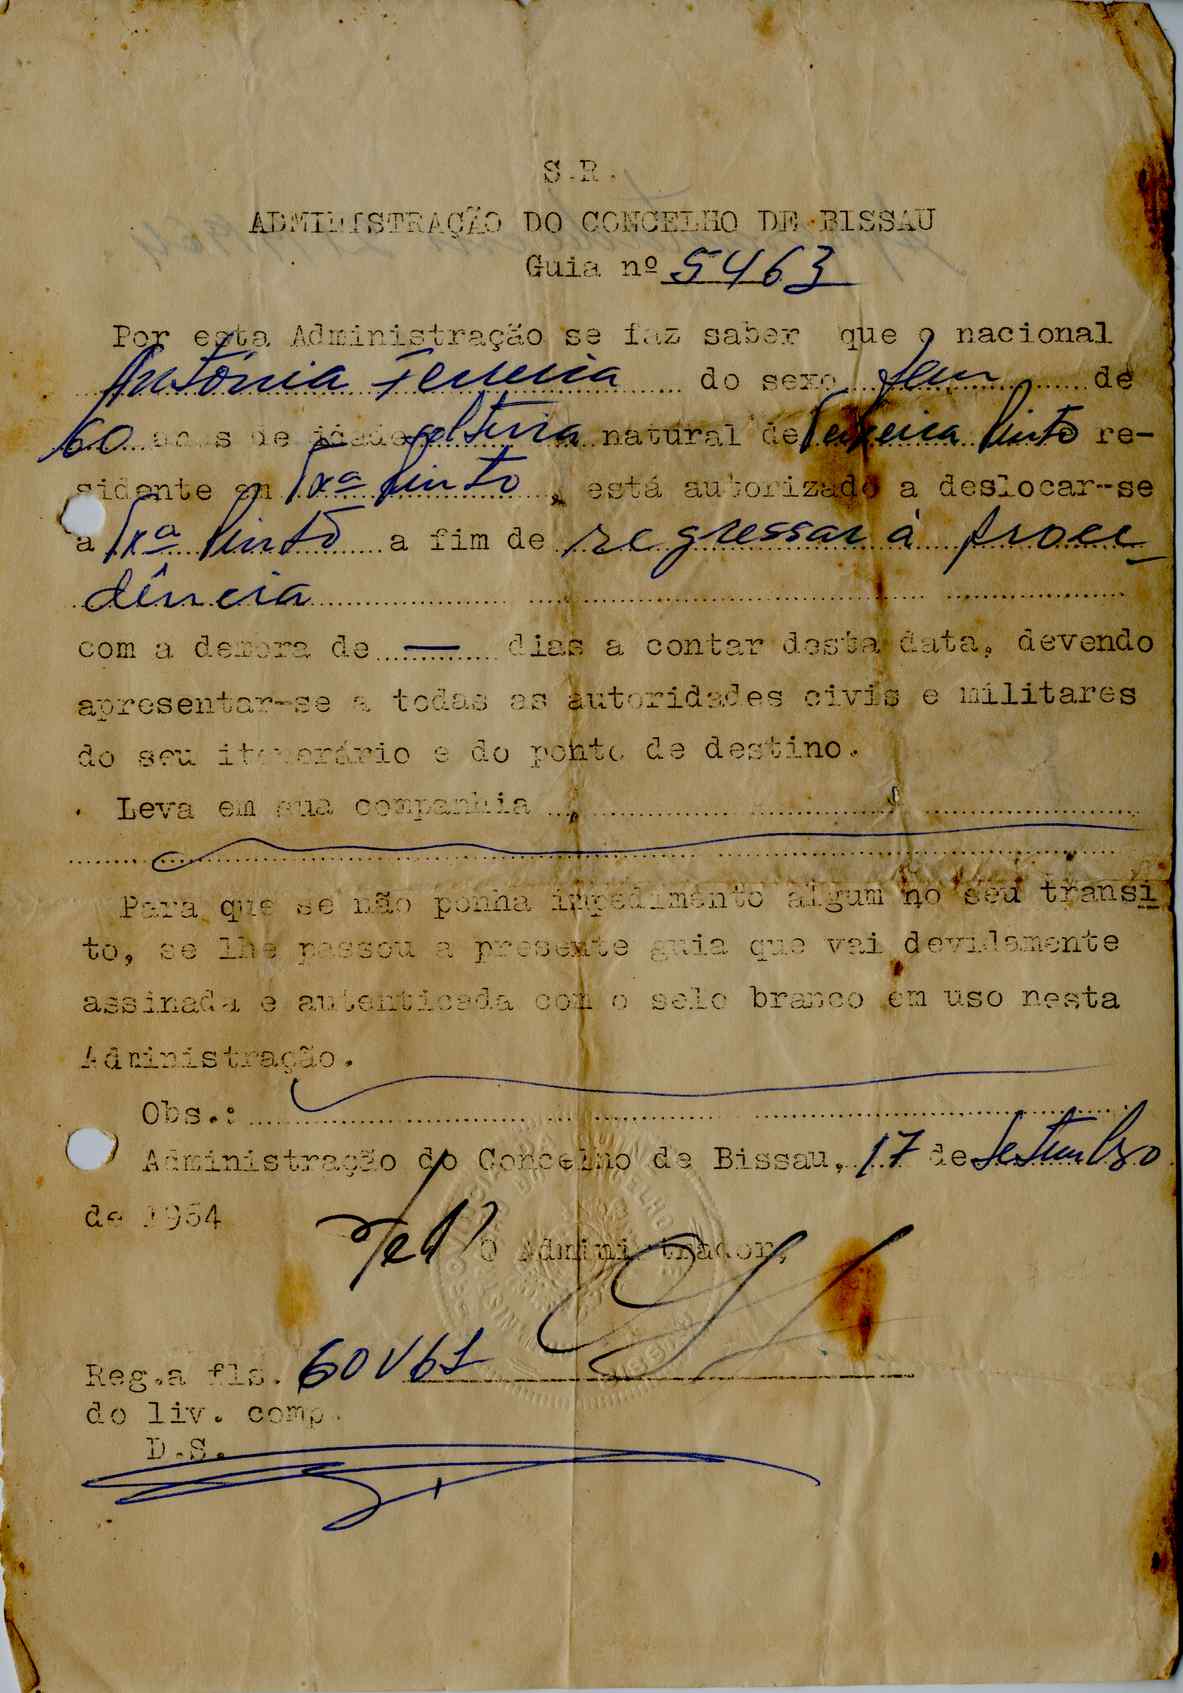 S.R.
ADMINISTRAÇÃO DO CONCELHO DE BISSAU
Guia nº 5463
Por esta Administração se faz saber que o nacional
Antónia Ferreira do sexo fem de
60 anos de idade, solteira natural de Teixeira Pinto re-
sidente em Txª Pinto, está autorizado a deslocar-se
a Txª Pinto a fim de regressar à proce
dência
com a demora de — dias a contar desta data, devendo
apresentar-se a todas as autoridades civis e militares
do seu itenerário e do ponto de destino.
Leva em sua companhia
Para que se não ponha impedimento algum no seu transi
to, se lhe passou a presente guia que vai devidamente
assinada e autenticada com o selo branco em uso nesta
Administração.
Obs.:
Administração do Concelho de Bissau, 17 de Setembro
de 1964
O Administrador,
Reg.a fls. 60V61
do liv. comp.
D.S.